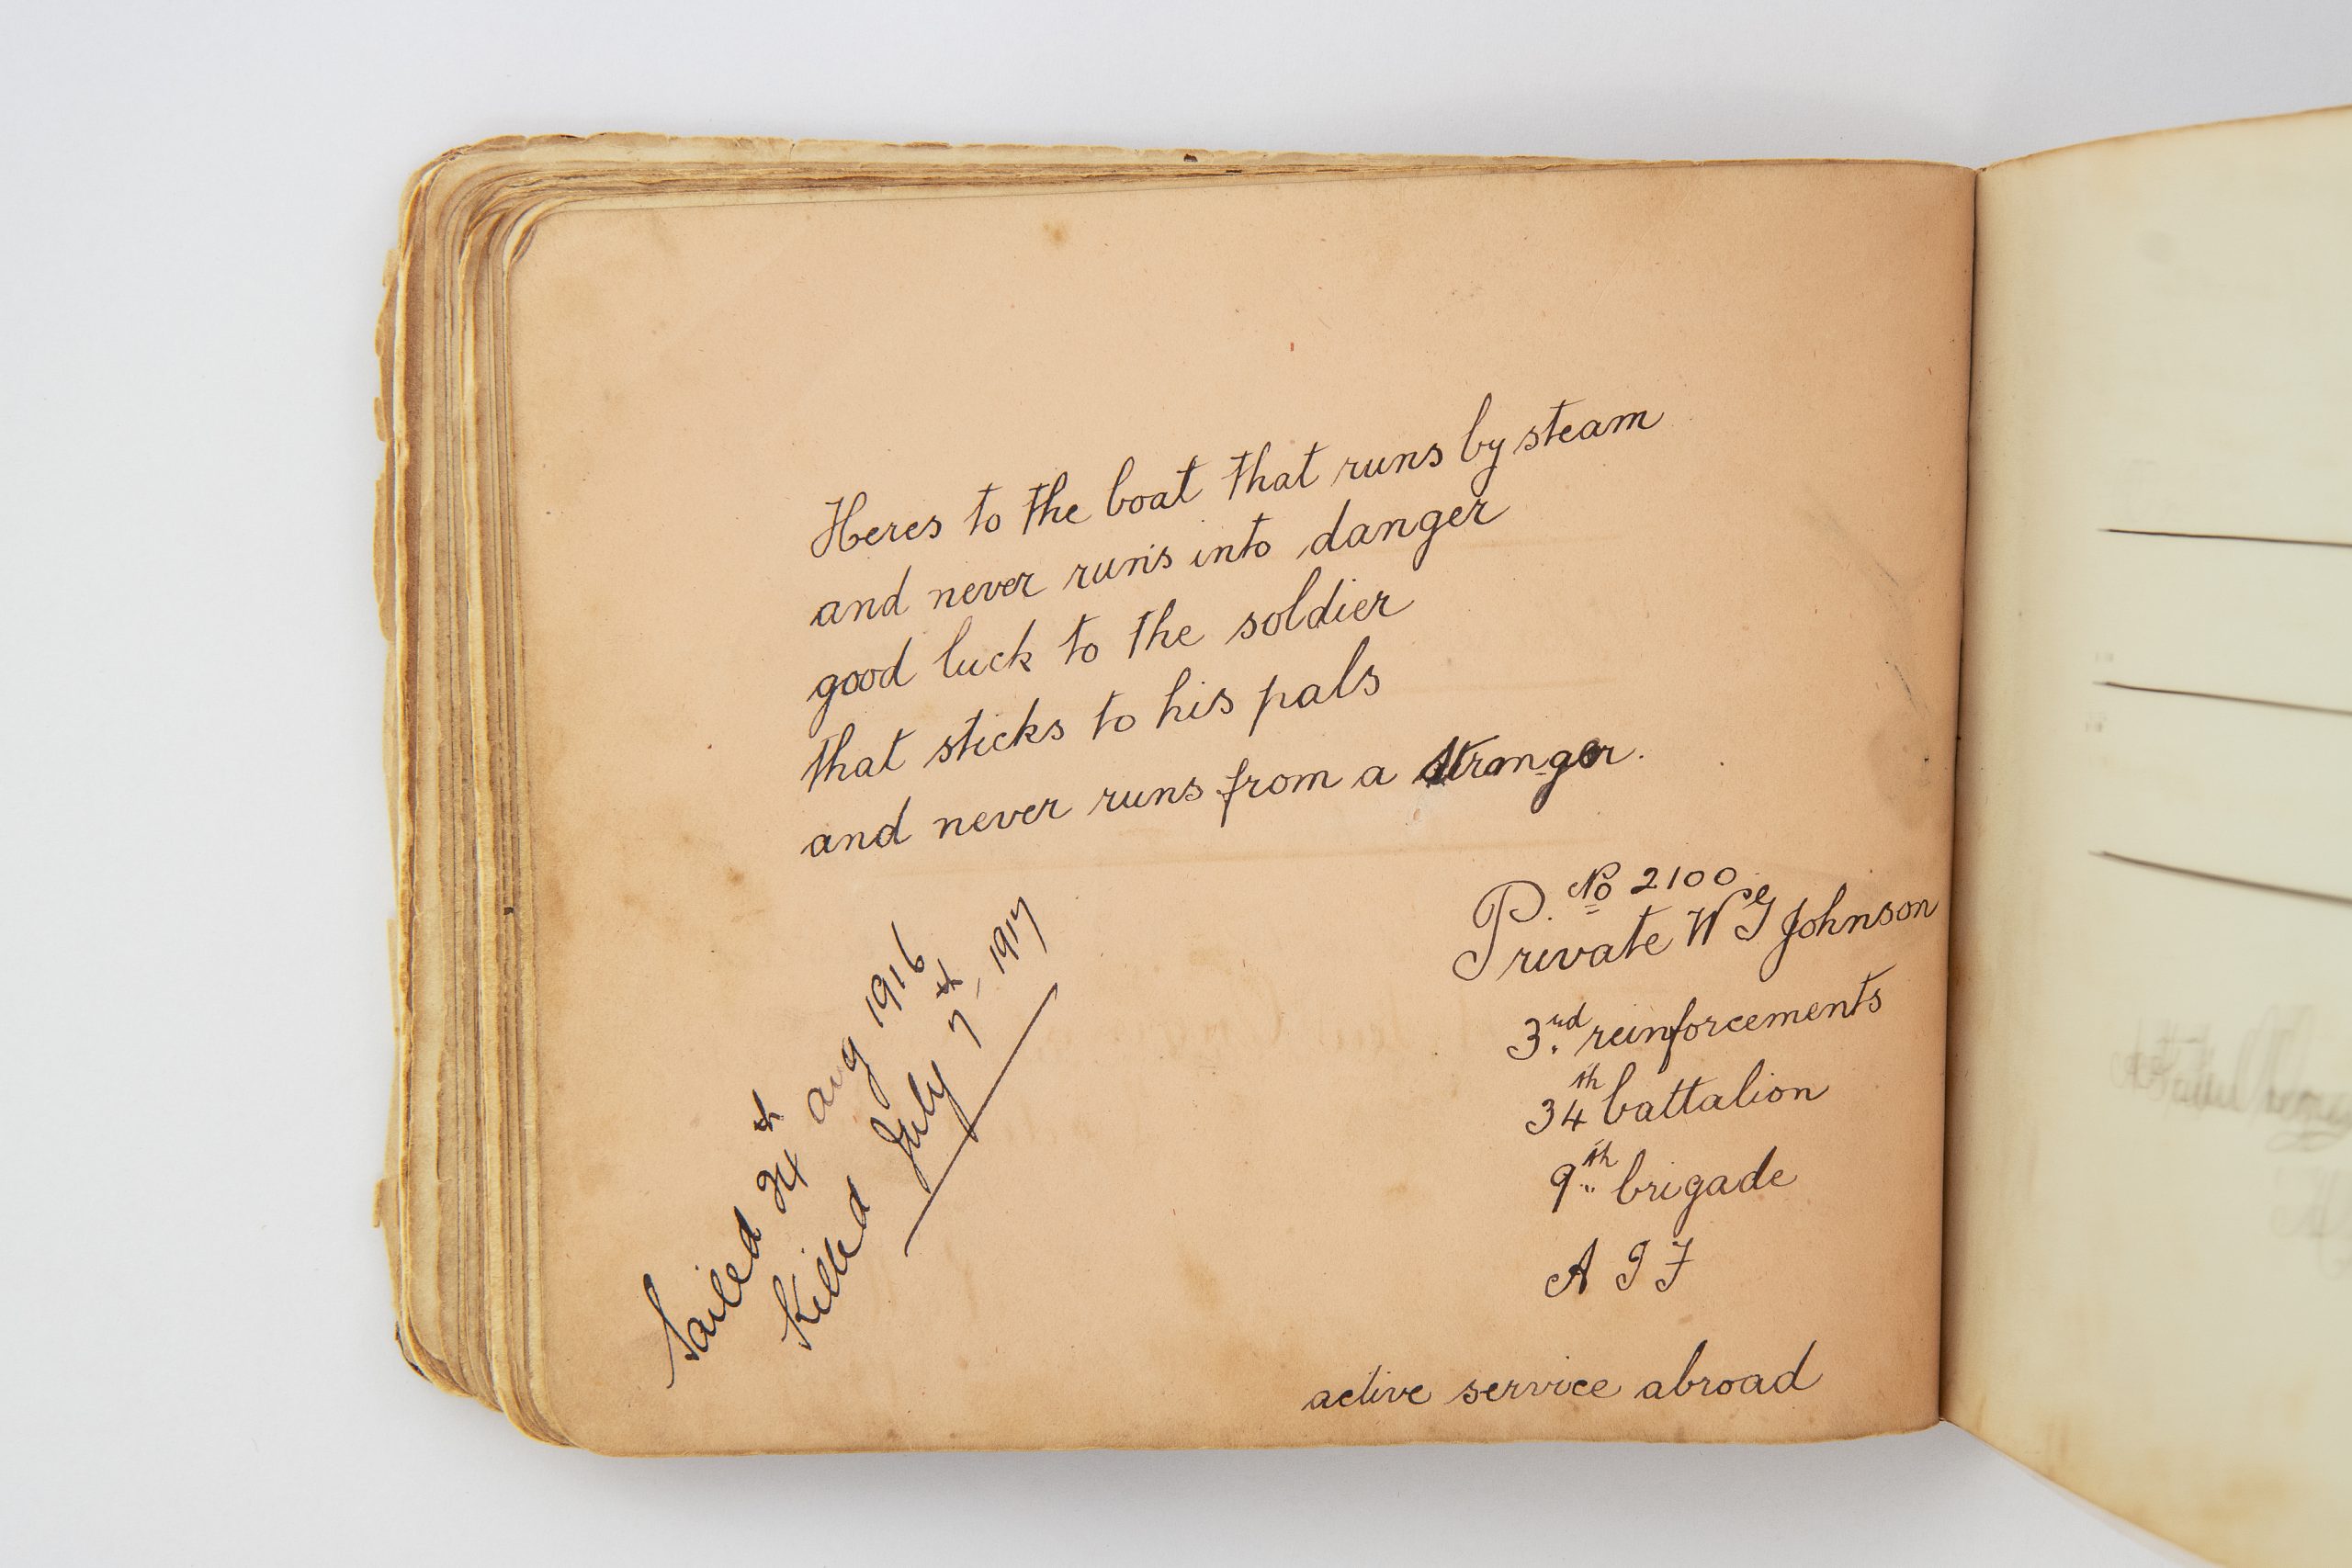 Heres to the boat that runs by steam
and never runs into danger
good luck to the soldier
that sticks to his pals
and never runs from a stranger.
P. No 2100
Private W G Johnson
3rd reinforcements
34th battalion
9th brigade
A I F
active service abroad
Sailed 24th aug 1916
Killed July 7th 1917